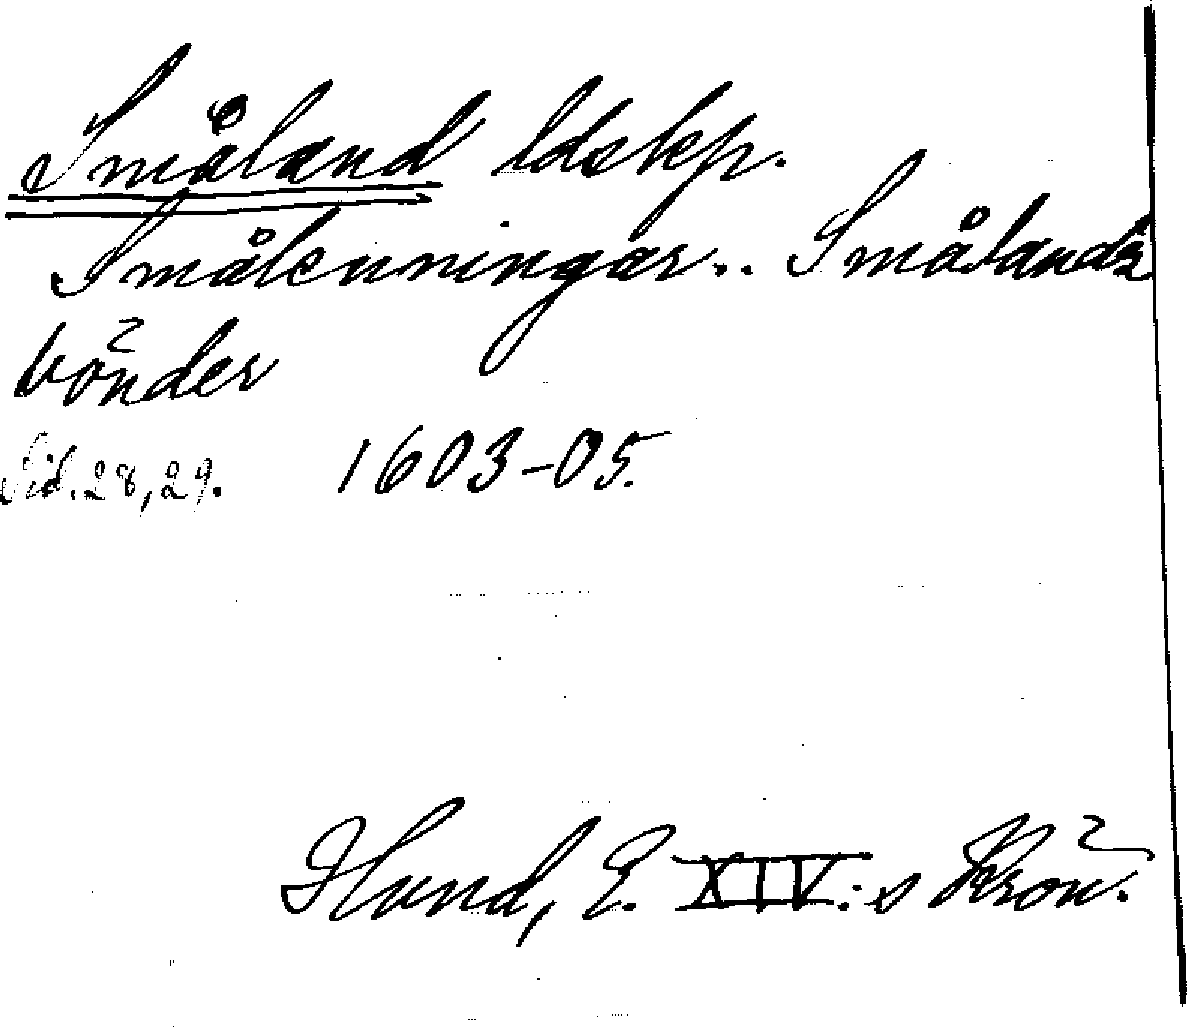 Småland ldskp.
Smålenningar.. Smålandz
bönder
Sid. 28, 29. 1603-05.
Hund, E. XIV:s Krön.